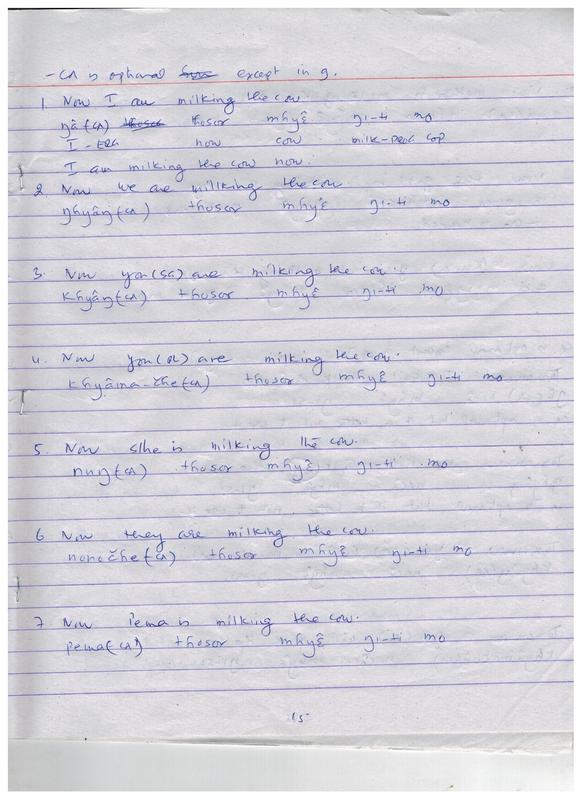 -CA is optional except in 9.
1 Now I am milking the cow.
ŋâ(CA) thosor mhyɛ̂ ŋi-ti mo
I-ERG now cow milk-PROG COP
I am milking the cow now.
2. Now we are millking the cow
ŋhyâŋ(CA) thosor mhyɛ̂ ŋi-ti mo
3. Now you(SG) are milking the cow.
Khyâŋ(CA) thosor mhyɛ̂ ŋi-ti mo
4. Now you(PL) are milking the cow.
Khyâma-čhe(CA) thosor mhyɛ̂ ŋi-ti mo
5. Now s/he is milking the cow.
nuŋ(CA) thosor mhyɛ̂ ŋi-ti mo
6 Now they are milking the cow.
nonočhe(CA) thosor mhyɛ̂ ŋi-ti mo
7 Now Pema is milking the cow.
pema(CA) thosor mhyɛ̂ ŋi-ti mo
15